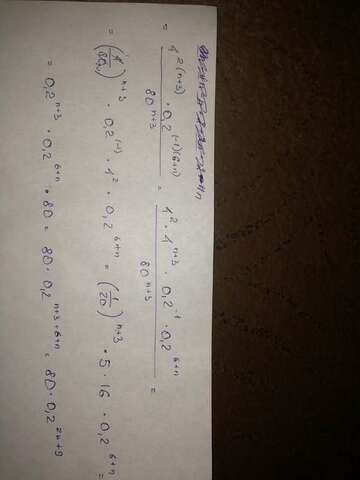 = 4^{2(n+3)} · 0,2^{(-1)(6+n)} / 80^{n+3} = 4^2 · 4^{n+3} · 0,2^{-1} · 0,2^{6+n} / 80^{n+3} =
= (4/80)^{n+3} · 0,2^{(-1)} · 4^2 · 0,2^{6+n} = (1/20)^{n+3} · 5 · 16 · 0,2^{6+n} =
= 0,2^{n+3} · 0,2^{6+n} · 80 = 80 · 0,2^{n+3+6+n} = 80 · 0,2^{2n+9}